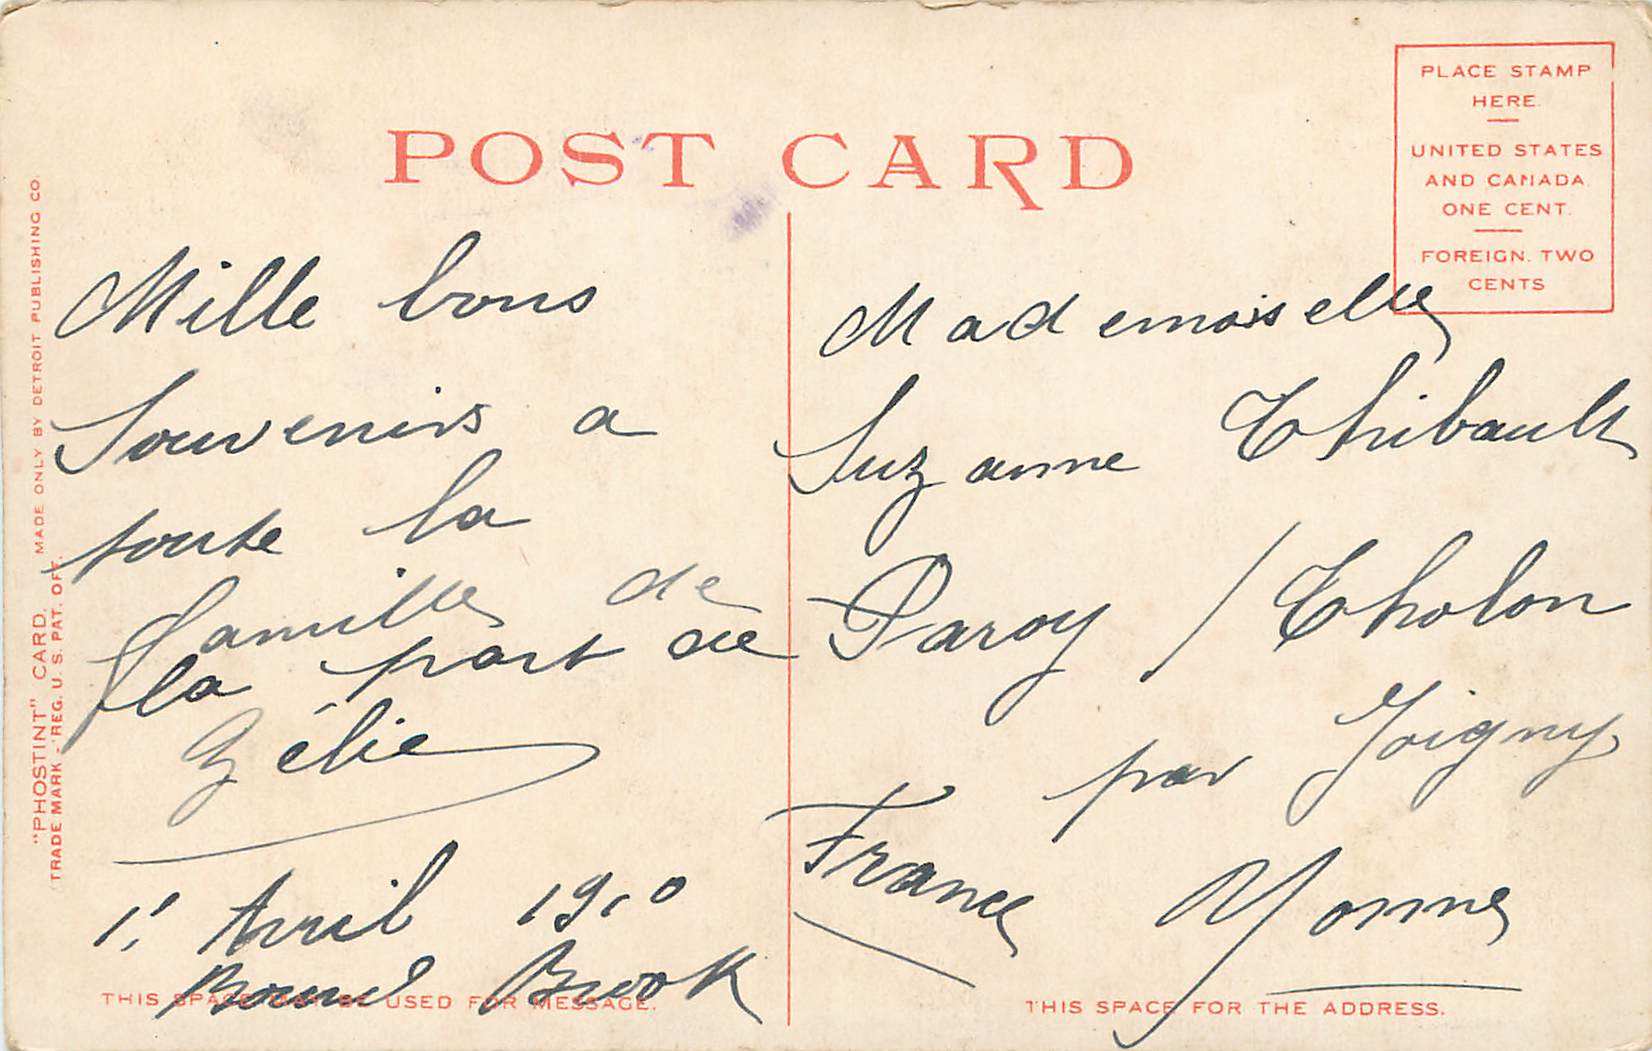 POST CARD
PLACE STAMP
HERE
UNITED STATES
AND CANADA
ONE CENT.
FOREIGN. TWO
CENTS
"PHOSTINT" CARD. MADE ONLY BY DETROIT PUBLISHING CO.
TRADE MARK - REG. U. S. PAT. OFF.
Mille bons
Souvenirs a
toute la
famille de
la part de
Zélie
1' Avril 1910
Bound Brook
THIS SPACE MAY BE USED FOR MESSAGE.
Mademoiselle
Suzanne Thibault
Paroy / Tholon
par Joigny
France Yonne
THIS SPACE FOR THE ADDRESS.